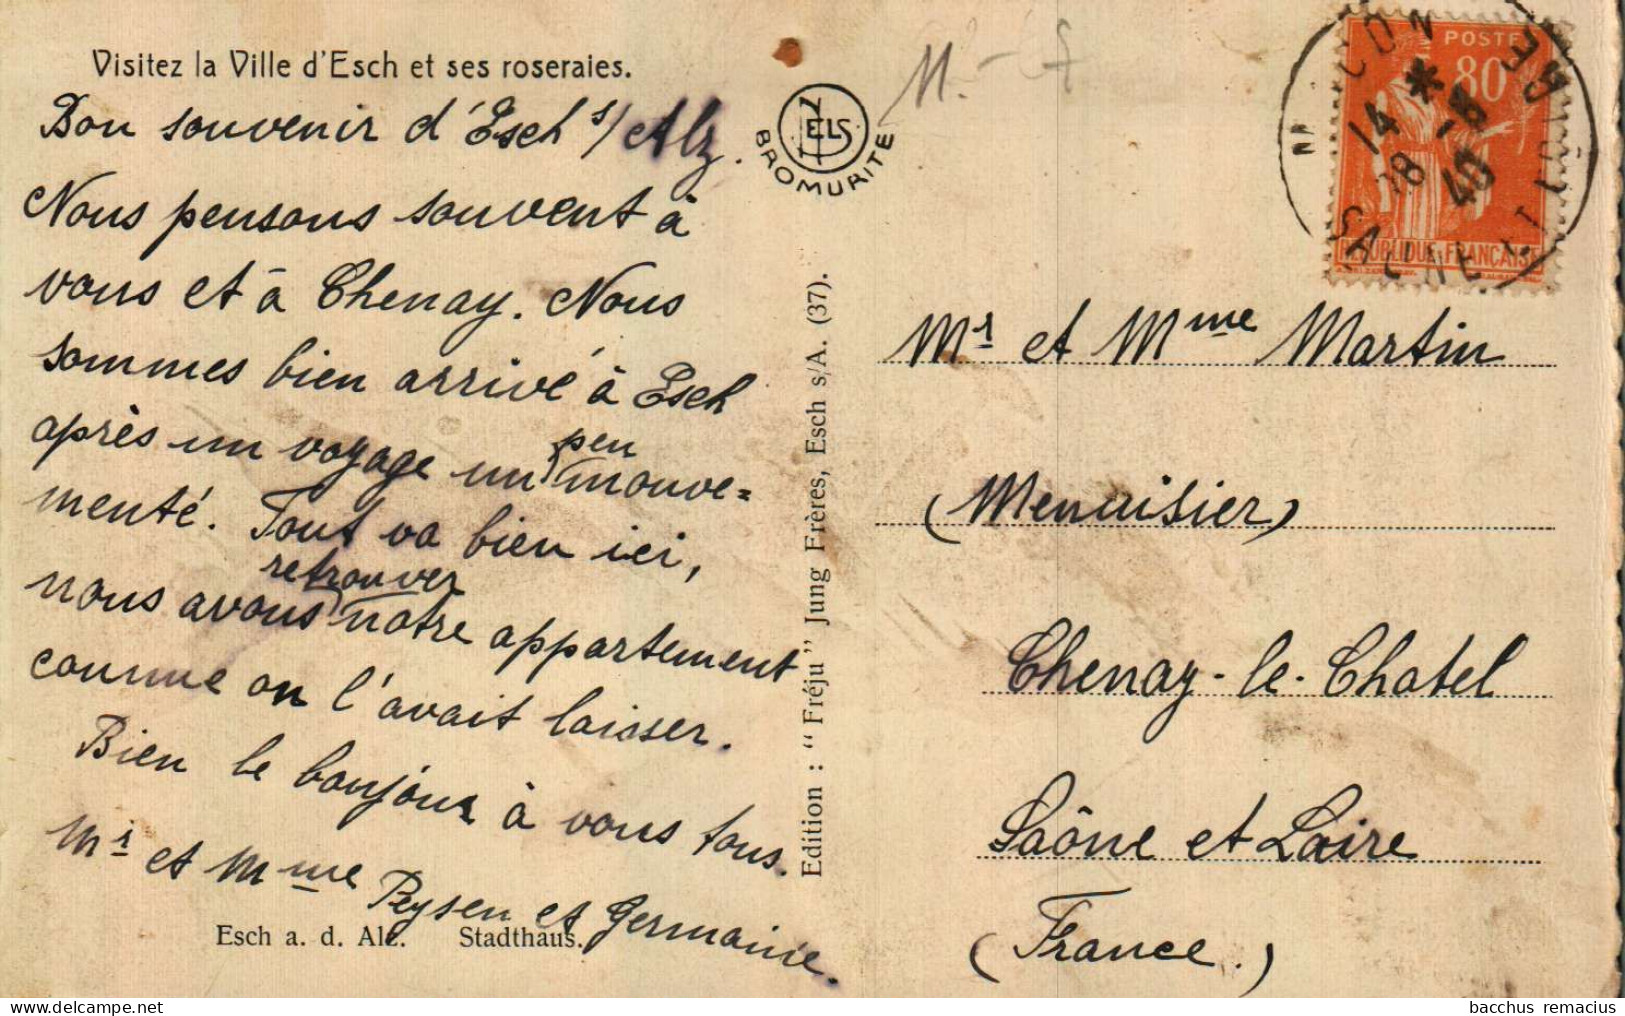 Visitez la Ville d'Esch et ses roseraies.
Bon souvenir d'Esch s/Alz.
Nous pensons souvent à
vous et à Chenay. Nous
sommes bien arrivé à Esch
après un voyage un peu mouve=
menté. Tout va bien ici,
nous avons retrouver notre appartement
comme on l'avait laisser.
Bien le bonjour à vous tous.
Mr et Mme Peysen et Germaine.
Esch a. d. Alz. Stadthaus.
NELS
BROMURITE
Edition : "Fréju" Jung Frères, Esch s/A. (37).
POSTES
80
REPUBLIQUE FRANÇAISE
14 * -8
18 40
SAONE ET LOIRE
Mr et Mme Martin
(Menuisier)
Chenay-le-Chatel
Saône et Loire
(France.)
bacchus remacius